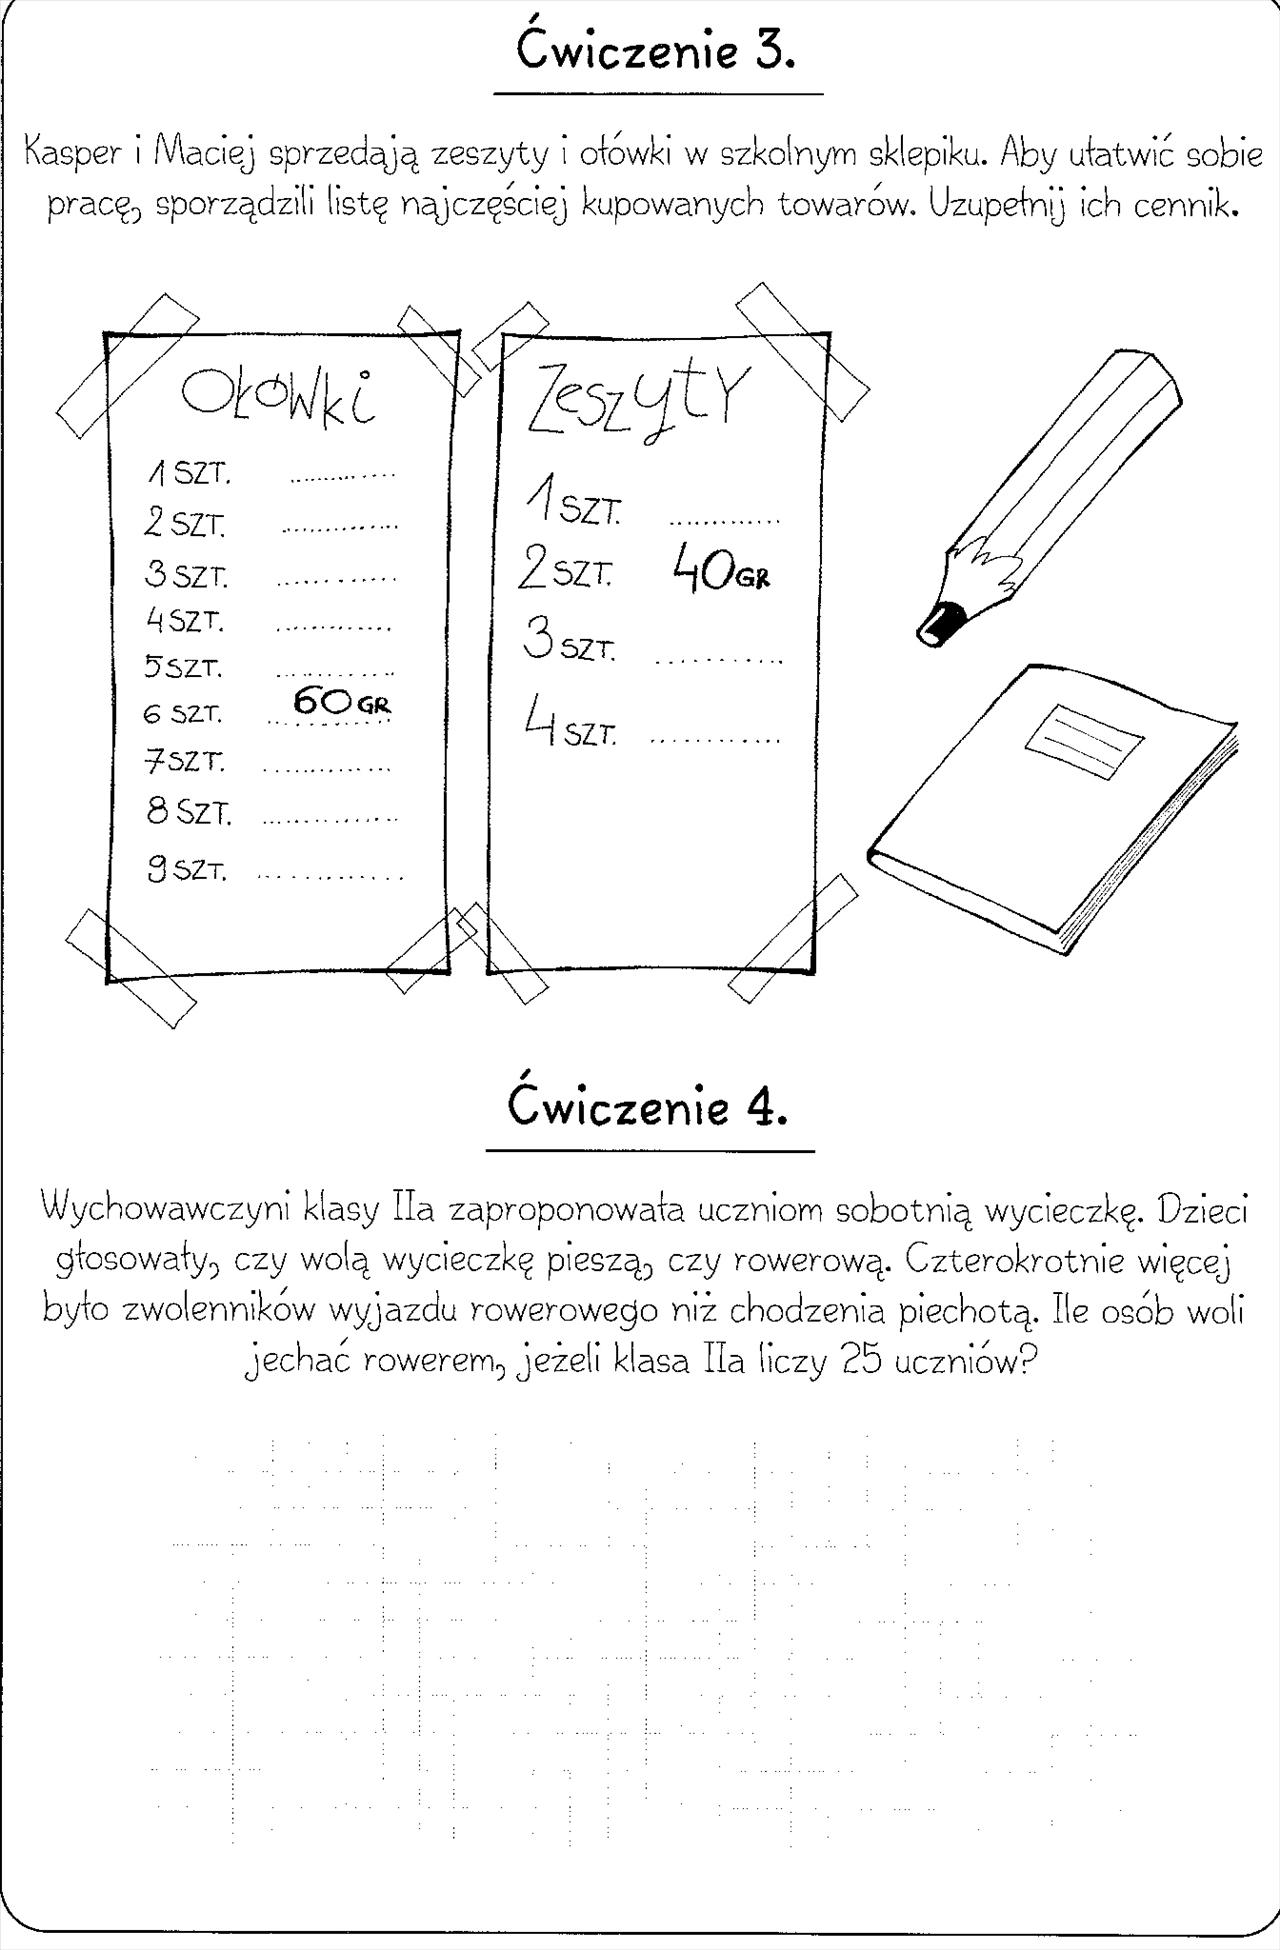 Ćwiczenie 3.
Kasper i Maciej sprzedają zeszyty i ołówki w szkolnym sklepiku. Aby ułatwić sobie
pracę, sporządzili listę najczęściej kupowanych towarów. Uzupełnij ich cennik.
Ołówki
1 SZT. ............
2 SZT. ............
3 SZT. ............
4 SZT. ............
5 SZT. ............
6 SZT. 60 GR
7 SZT. ............
8 SZT. ............
9 SZT. ............
Zeszyty
1 SZT. ............
2 SZT. 40 GR
3 SZT. ............
4 SZT. ............
Ćwiczenie 4.
Wychowawczyni klasy IIa zaproponowała uczniom sobotnią wycieczkę. Dzieci
głosowały, czy wolą wycieczkę pieszą, czy rowerową. Czterokrotnie więcej
było zwolenników wyjazdu rowerowego niż chodzenia piechotą. Ile osób woli
jechać rowerem, jeżeli klasa IIa liczy 25 uczniów?